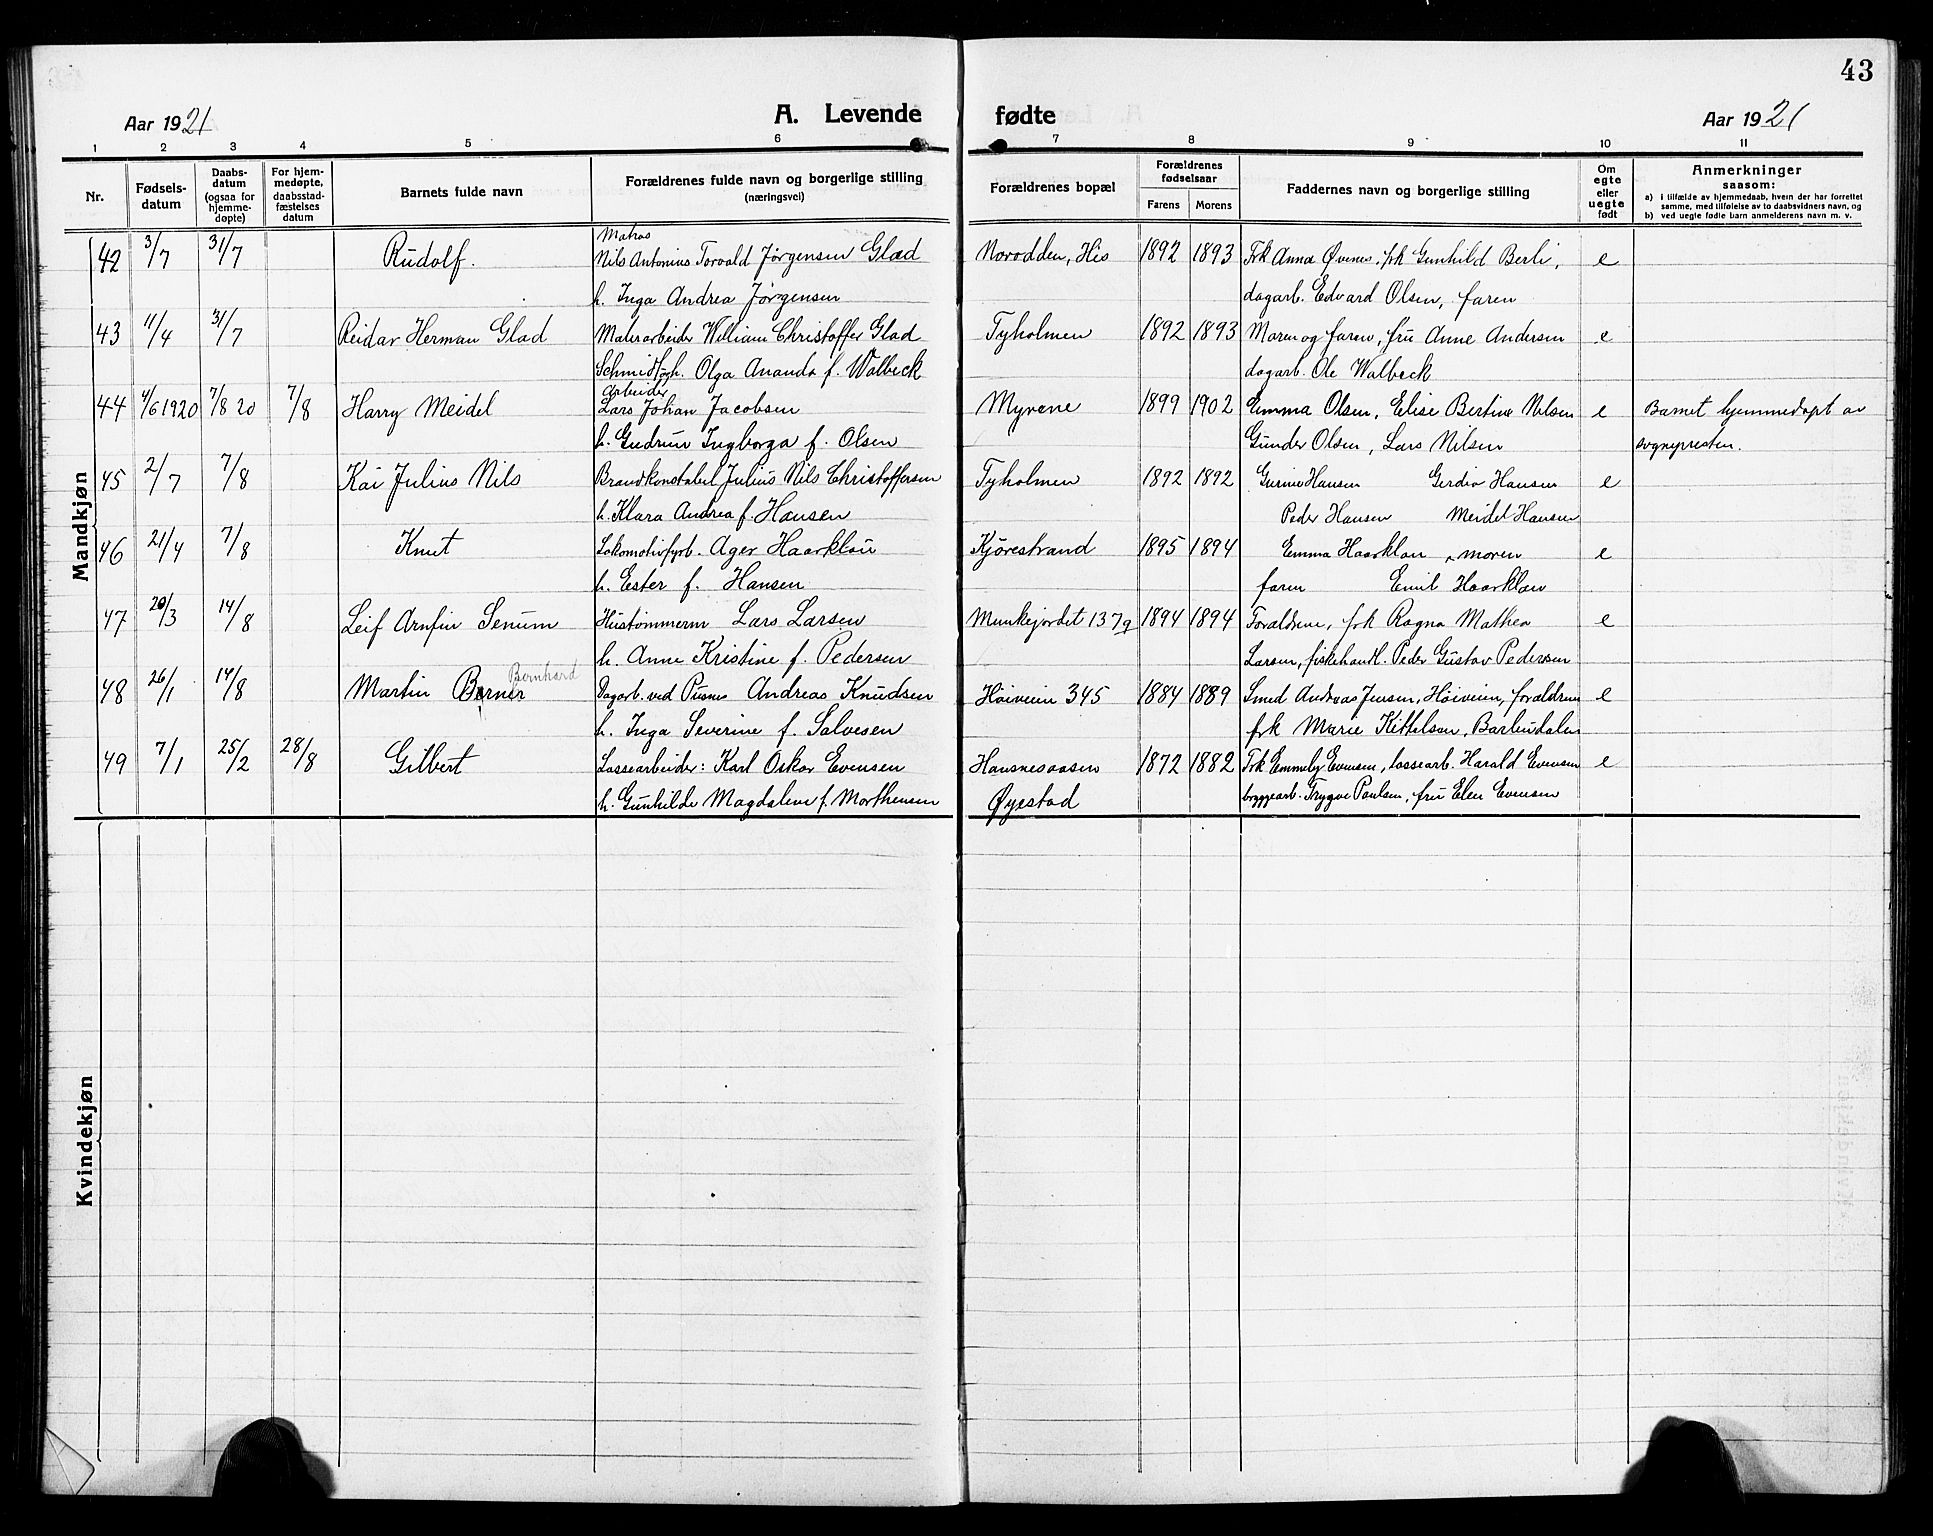 43
Aar 1921 A. Levende fødte Aar 1921
1 2 3 4 5 6 7 8 9 10 11
Nr. Fødsels-datum Daabs-datum (ogsaa for hjemme-døpte) For hjem-medøpte, daabsstad-fæstelses datum Barnets fulde navn Forældrenes fulde navn og borgerlige stilling (næringsvei) Forældrenes bopæl Forældrenes fødselsaar Farens Morens Faddernes navn og borgerlige stilling Om egte eller uegte født Anmerkninger saasom:
a) i tilfælde av hjemmedaab, hvem der har forrettet samme, med tilføielse av to daabsvidners navn, og
b) ved uegte fødte barn anmelderens navn m. v.
Mandkjøn
Matros
42 3/7 31/7 Rudolf. Nils Antonius Torvald Jørgensen Glad Norodden, His 1892 1893 Frk Anna Øvenes, frk Gunhild Berli, e
h. Inga Andrea Jørgensen dagarb. Edvard Olsen, faren
43 11/4 31/7 Reidar Herman Glad Malerarbeider William Christoffer Glad Tyholmen 1892 1893 Moren og faren, fru Anne Andersen e
Schmidt og h. Olga Amanda f. Walbeck dagarb. Ole Walbeck
Arbeider
44 4/6 1920 7/8 20 7/8 Harry Meidel Lars Johan Jacobsen Myrene 1899 1902 Emma Olsen, Elise Bertine Nilsen e Barnet hjemmedøpt av
h. Gudrun Ingborga f. Olsen Gunder Olsen, Lars Nilsen sognepresten.
45 2/7 7/8 Kai Julius Nils Brandkonstabel Julius Nils Christoffersen Tyholmen 1892 1892 Gurine Hansen Gerdia Hansen e
h. Klara Andrea f. Hansen Peder Hansen Meidel Hansen
46 21/4 7/8 Knut Lokomotivfyrb. Ager Haarklau Kjørestrand 1895 1894 Emma Haarklau, moren e
h. Ester f. Hansen faren Emil Haarklau
47 20/3 14/8 Leif Arnfin Senum Hustømmerm Lars Larsen Munkejordet 137g 1894 1894 Forældrene, frk Ragna Mathea e
h. Anne Kristine f. Pedersen Larsen, fiskehandl. Peder Gustav Pedersen
Bernhard
48 26/1 14/8 Martin Berner Dagarb. ved Pusnes Andreas Knudsen Høiveien 345 1884 1889 Smed Andreas Jensen, Høiveien, forældrene e
h. Inga Severine f. Salvesen frk Marie Kittelsen, Barbudalen
49 7/1 25/2 28/8 Gilbert Lossearbeider: Karl Oskar Evensen Hausnesaasen 1872 1882 Frk Emmely Evensen, lossearb. Harald Evensen e
h. Gunhilde Magdalene f. Morthensen Øyestad bryggearb. Trygve Paulsen, fru Elen Evensen
Kvindekjøn